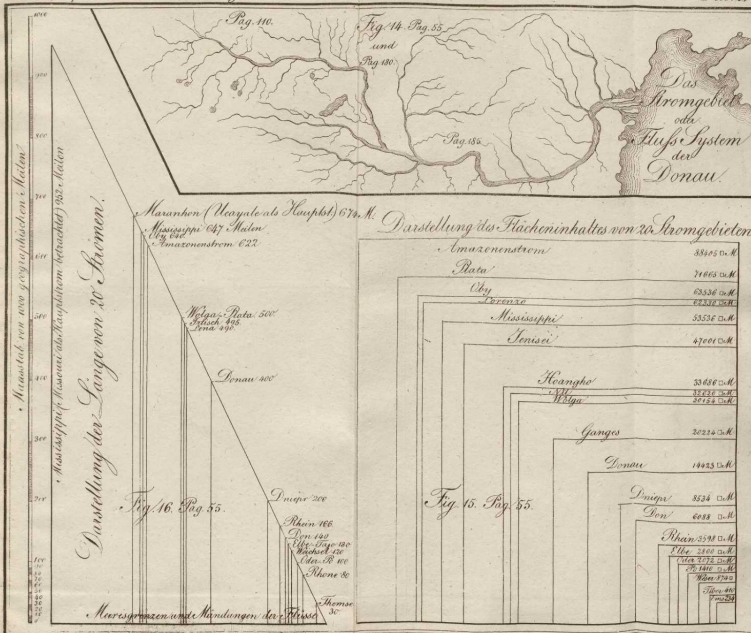 Pag. 110.
Fig. 14. Pag. 55
und
Pag. 180.
Pag. 185.
Das
Stromgebiet
oder
Fluss System
der
Donau.
Maasstab von 1000 geographischen Meilen
Mississippi (Missouri als Hauptstrom betrachtet) 952 Meilen
Darstellung der Länge von 20 Strömen.
Maranhon (Ucayale als Hauptst.) 674 M.
Mississippi 647 Meilen
Oby 646
Amazonenstrom 622
Wolga-Plata 500
Irtisch 495
Lena 490
Donau 400
Dniepr 200
Rhein 166
Don 140
Elbe-Tajo 130
Weichsel 120
Oder-Po 100
Rhone 80
Themse
30
Fig. 16. Pag. 55.
Meeresgrenzen und Mündungen der Flüsse
1000
900
800
700
600
500
400
300
200
100
Darstellung des Flächeninhaltes von 20 Stromgebieten
Amazonenstrom 88405 □M
Plata 71665 □M
Oby 63536 □M
Lorenzo 62330 □M
Mississippi 53536 □M
Jenisei 47001 □M
Hoangho 33686 □M
Nil 32620 □M
Wolga 30154 □M
Ganges 20224 □M
Donau 14423 □M
Dniepr 8534 □M
Don 6088 □M
Rhein 3598 □M
Elbe 2800 □M
Oder 2072 □M
Po 1410 □M
Weser 874 □
Fig. 15. Pag. 55.